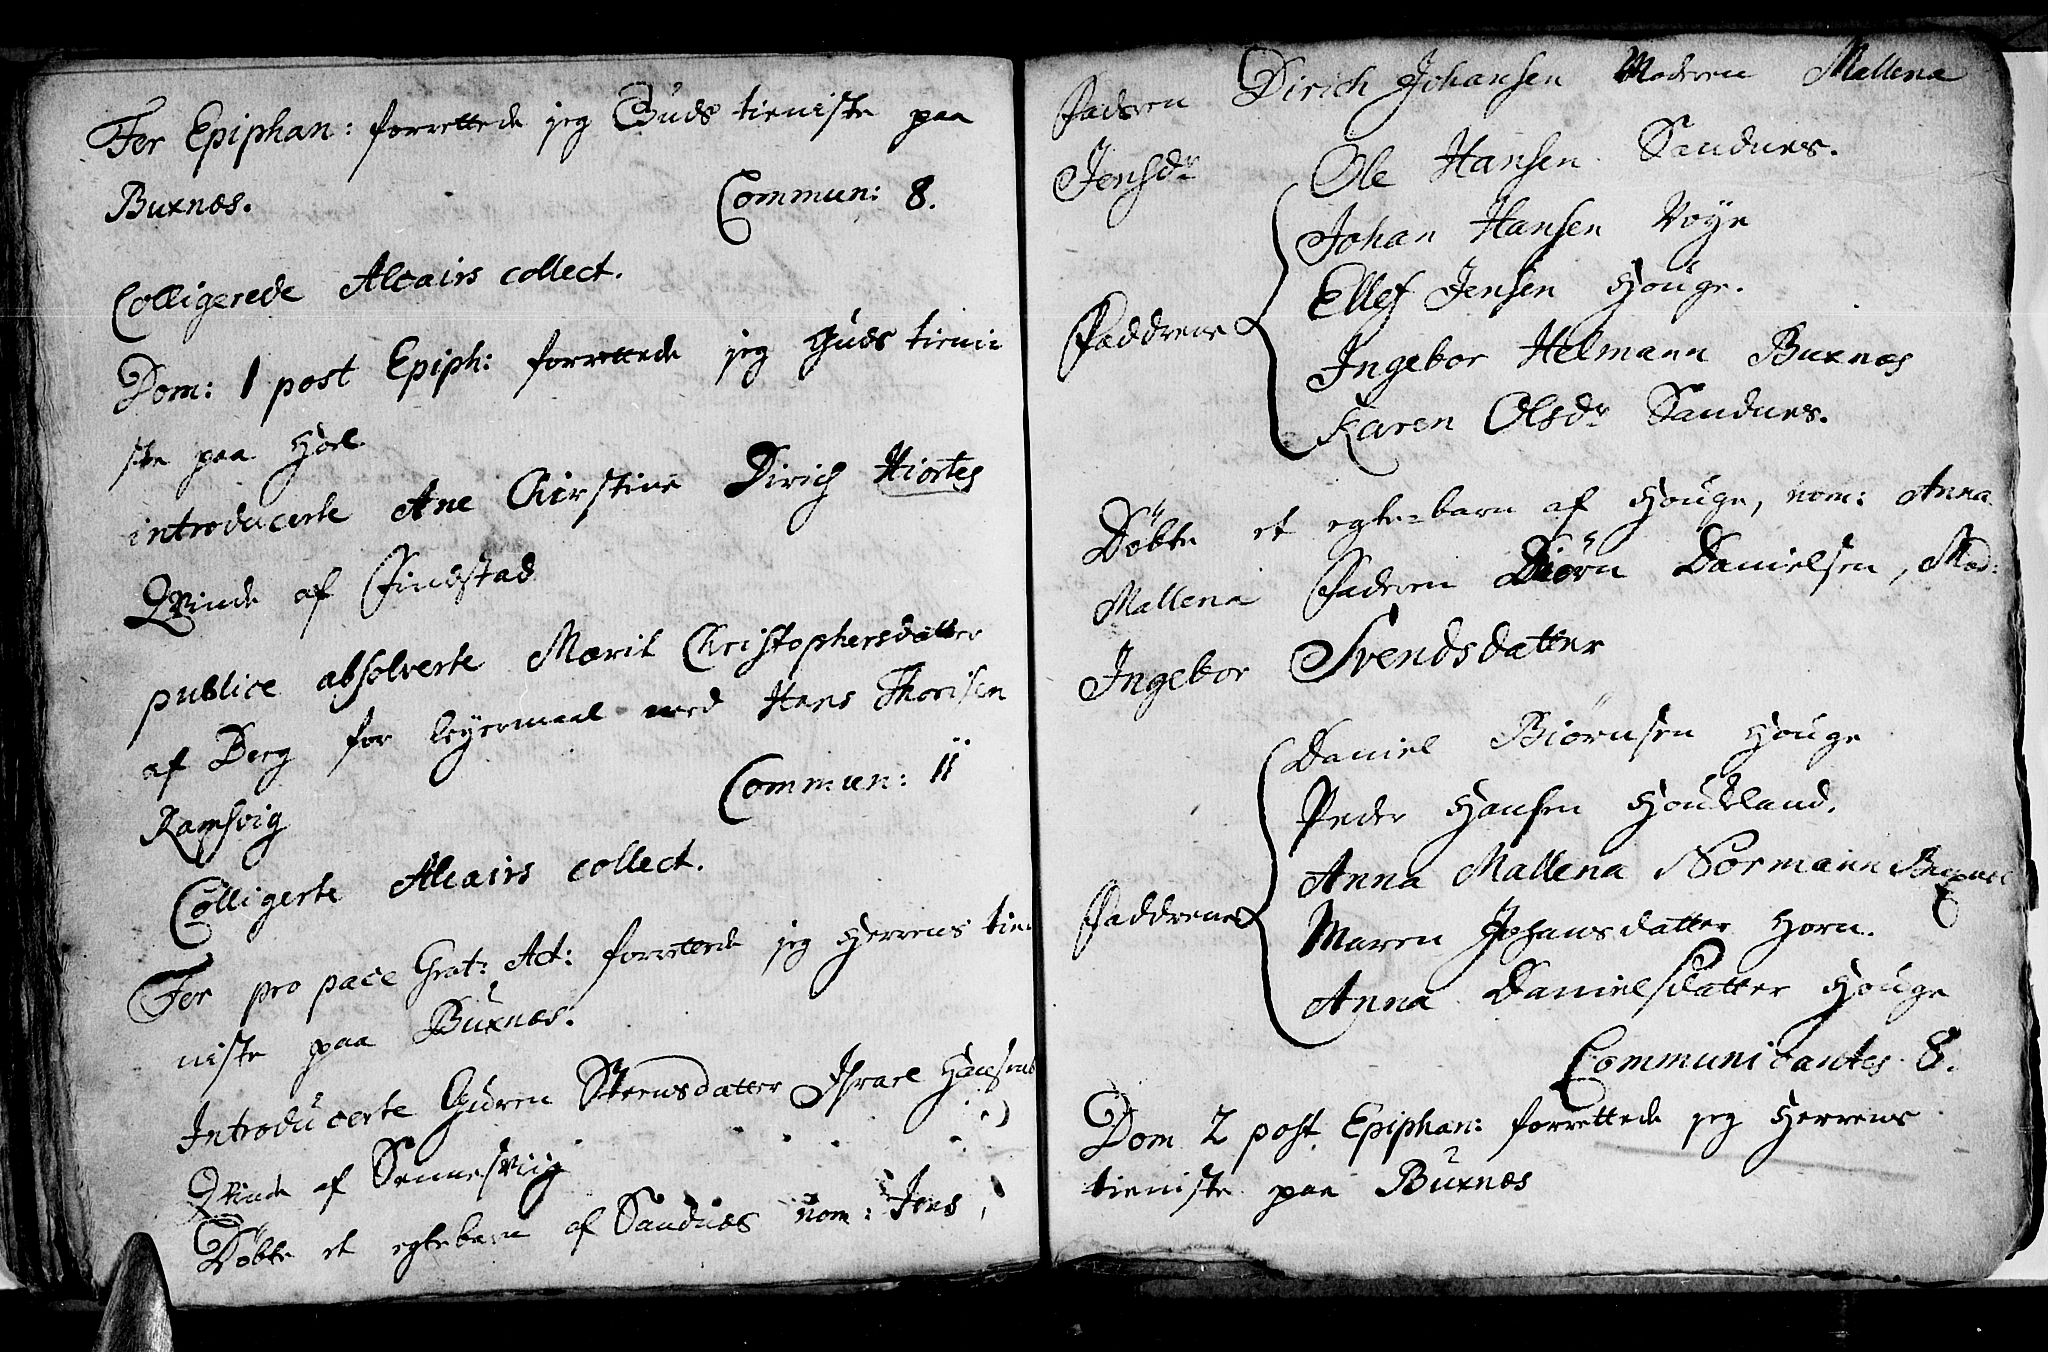 Fer Epiphan: forrettede jeg Guds tieniste paa
Buxnæs. Commun: 8.
Colligerede Altairs collect.
Dom: 1 post Epiph: forrettede jeg Guds tieni=
ste paa Hoel
introducerte Ane Chirstine Dirich Hiortes
Qvinde af Findstad
publice absolverte Marit Christophersdatter
af Berg for leyermaal med Hans Thorisen
Ramsvig Commun: 11
Colligerte Altairs collect.
Fer pro pace Grat: Act: forrettede jeg Herrens tie
niste paa Buxnæs.
Introducerte Guren Steensdatter Israel Hansens
Qvinde af Sennesviig
Döbte et egtebarn af Sandnæs nom: Jens,
Faderen Dirich Johansen Moderen Mallena
Jensdr
Ole Hansen Sandnes.
Johan Hansen Voye
Ellef Jensen Houge.
Fadderne
Ingebor Helmann Buxnæs
Karen Olsdr Sandnes.
Döbte et egte=barn af Houge, nom: Anna
Mallena Faderen Biörn Danielsen, Mod:
Ingebor Svendsdatter
Daniel Biörnsen Houge
Peder Hansen Houkland.
Anna Mallena Normann Buxnæs
Fadderne
Maren Johansdatter Horn.
Anna Danielsdatter Houge
Communicantes 8.
Dom 2 post Epiphan: forrettede jeg Herrens
tieniste paa Buxnæs